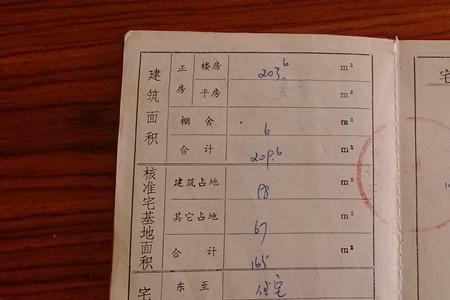 建筑面积 正房 楼房 203.6 m²
平房 m²
棚舍 6 m²
合计 209.6 m²
核准宅基地面积 建筑占地 98 m²
其它占地 67 m²
合计 165 m²
宅 东至 住宅
宅